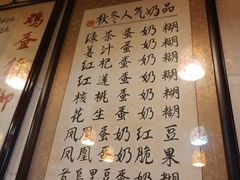 秋冬人气奶品
绿茶蛋奶糊
姜汁蛋奶糊
红杞蛋奶糊
红莲蛋奶糊
核桃蛋奶糊
花生蛋奶糊
凤凰蛋奶红豆
凤凰蛋奶脆果
首乌黑豆蛋奶糊
鸡蛋